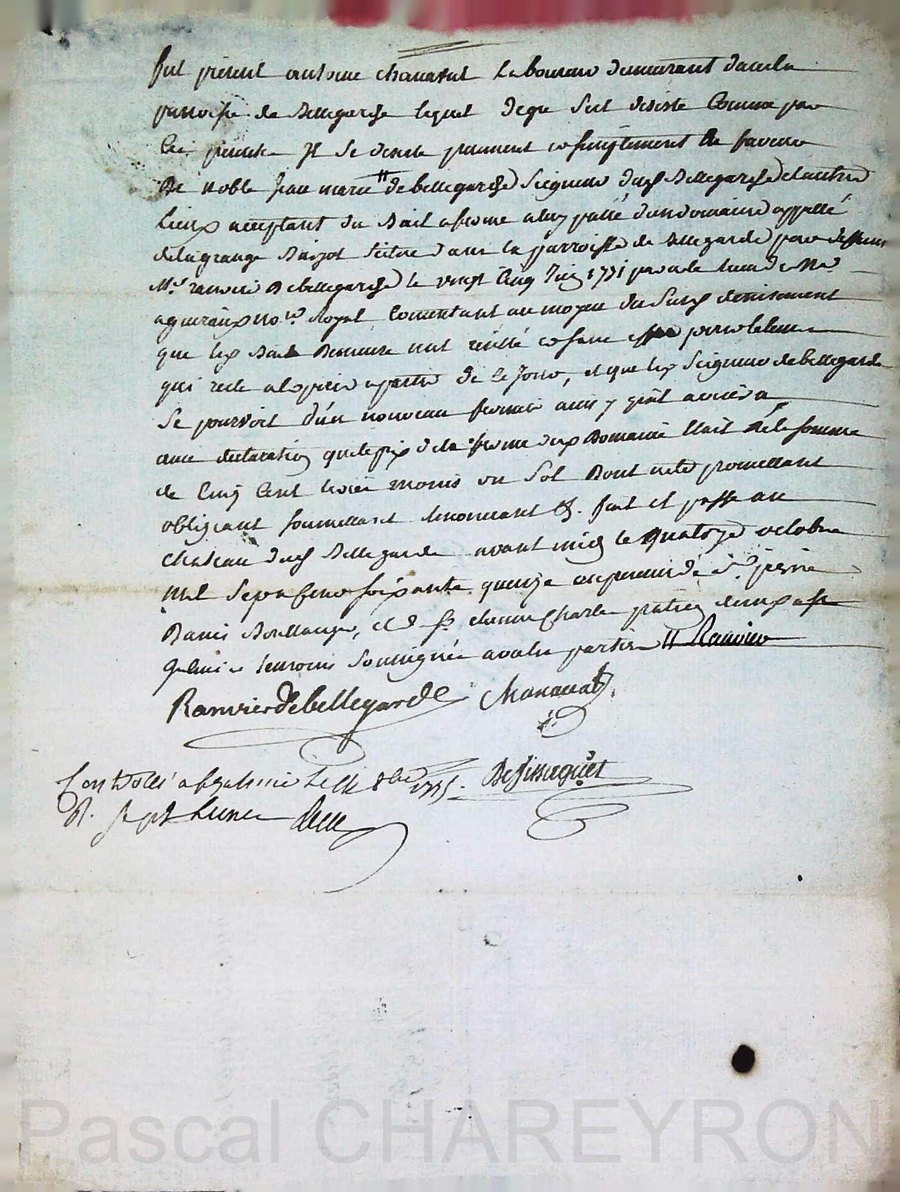 fut présent antoine chanavat Laboureur demeurant dans la
parroisse de Bellegarde lequel de gré s'est desisté Comme par
Ces présentes Il se desiste purement et simplement En faveur
De noble Jean marie // de bellegarde Seigneur dud Bellegarde et autres
Lieux acceptant du Bail a ferme a luy passé d'un domaine appellé
de la grange situé dans la parroisse de Bellegarde par deffunt
Mr ranvier De bellegarde le vingt Cinq 1771 par devant Me
no.re Royal, Consentant au moyen du
que led Bail Demeure nul résilié et sans effet pour le tems
qui reste a Expirer a partir de Ce Jour, et que led Seigneur de bellegarde
Se pourvoit d'un nouveau fermier ainsi qu'il avisera
avec declaration que le prix de la ferme dud Domaine était de la somme
de Cinq Cent livres moins un Sol Dont acte promettant
obligeant soumettant renonceant &. fait et passé au
Chateau dud Bellegarde avant midy le quatorze octobre
mil Sept Cent soixante quinze en présence de Sr. pierre
Boullanger, et de Sr. etienne Charle
temoins Soussignés avec les parties // Ranvier
Ranvier de bellegarde Chanavat
Controllé a St galmier Le 8bre 1775.
R. Sept
Pascal CHAREYRON